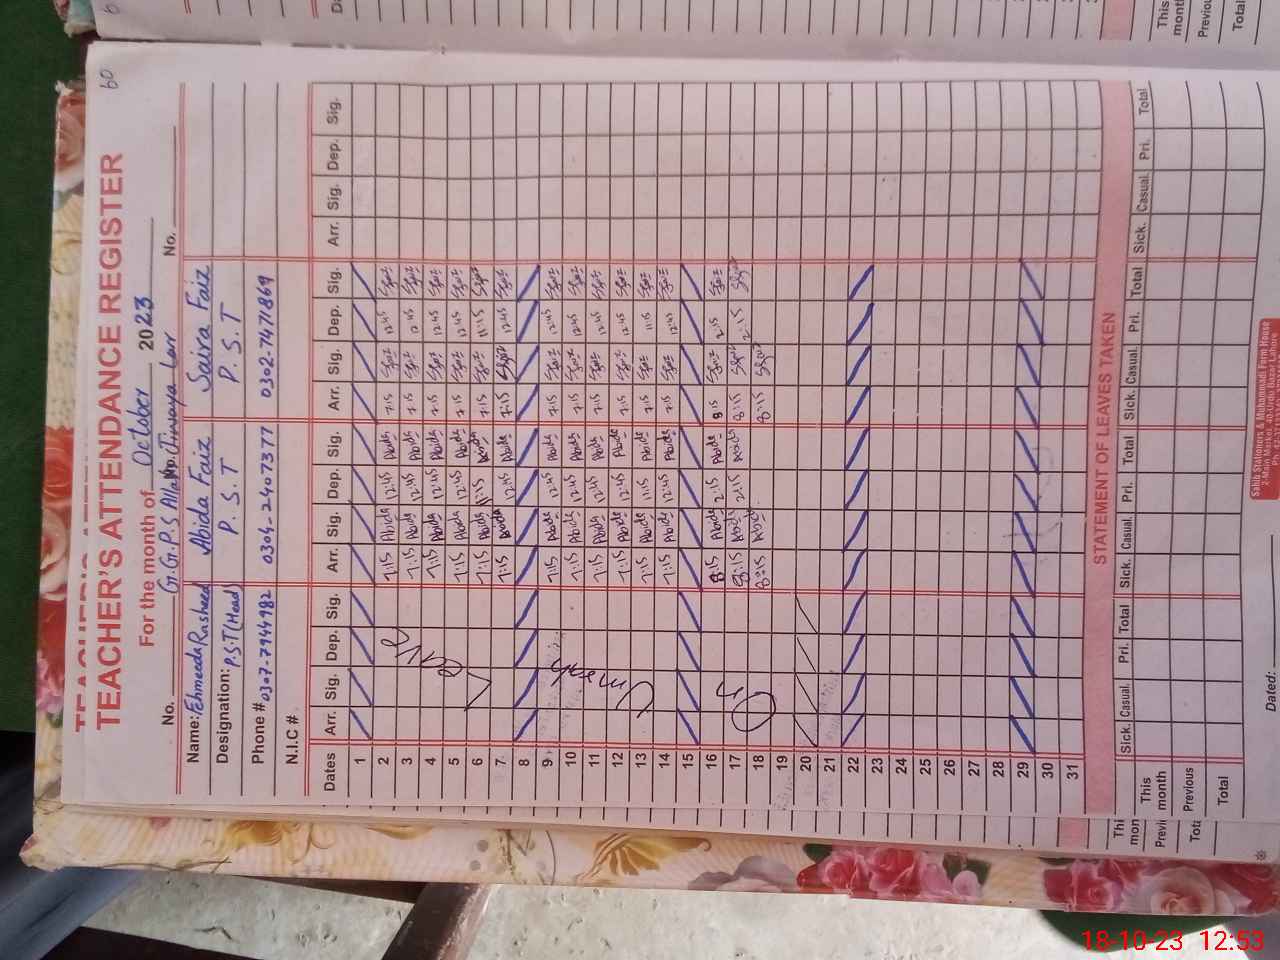 60
TEACHER'S ATTENDANCE REGISTER
For the month of October 2023
No. G.G.P.S Jiwaya Larr No.
Name: Fehmeeda Rasheed Abida Faiz Saira Faiz
Designation: P.S.T (Head) P.S.T P.S.T
Phone # 0307-7944982 0304-2407377 0302-7471869
N.I.C #
Dates Arr. Sig. Dep. Sig. Arr. Sig. Dep. Sig. Arr. Sig. Dep. Sig. Arr. Sig. Dep. Sig.
1
2 7:15 Abida 12:45 Abida 7:15 12:45
3 7:15 Abida 12:45 Abida 7:15 12:45
4 7:15 Abida 12:45 Abida 7:15 12:45
5 7:15 Abida 12:45 Abida 7:15 12:45
6 7:15 Abida 11:15 Abida 7:15 11:15
7. 7:15 Abida 12:45 Abida 7:15 12:45
8
9 7:15 Abida 12:45 Abida 7:15 12:45
10 7:15 Abida 12:45 Abida 7:15 12:45
11 7:15 Abida 12:45 Abida 7:15 12:45
12 7:15 Abida 12:45 Abida 7:15 12:45
13 7:15 Abida 11:15 Abida 7:15 11:15
14 7:15 Abida 12:45 Abida 7:15 12:45
15
16 8:15 Abida 2:15 Abida 8:15 2:15
17 8:15 Abida 2:15 Abida 8:15 2:15
18 8:15 Abida 8:15
19
20
21
22
23
24
25
26
27
28
29
30
31
On
leave
STATEMENT OF LEAVES TAKEN
Sick. Casual. Pri. Total Sick. Casual. Pri. Total Sick. Casual. Pri. Total Sick. Casual. Pri. Total
This month
Previous
Total
Dated:
Sahib Stationers & Muhammadi Form House
2-Main Market, 40-Urdu Bazar Lahore
18-10-23 12:53